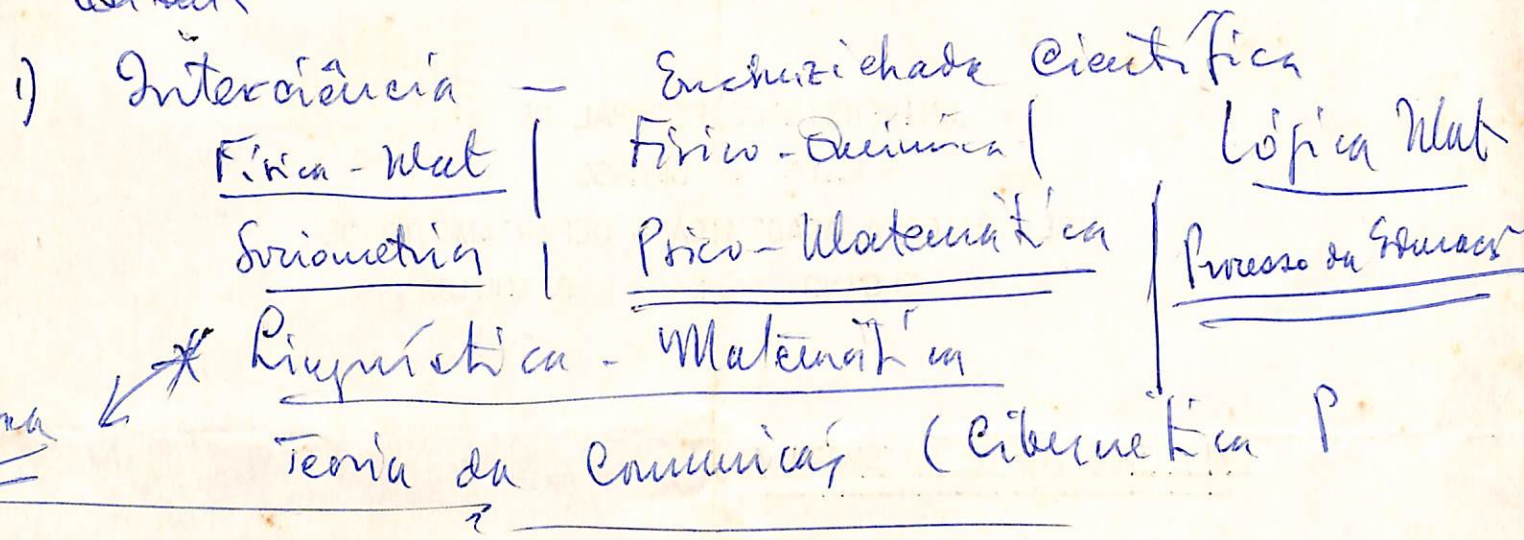 1) Interciência — Encruzilhada Científica
Física-Mat | Físico-Química | Lógica Mat
Sociometria | Psico-Matemática | Processo da Educaç
* Linguística - Matemática
Teoria da Comunicaç (Cibernética P